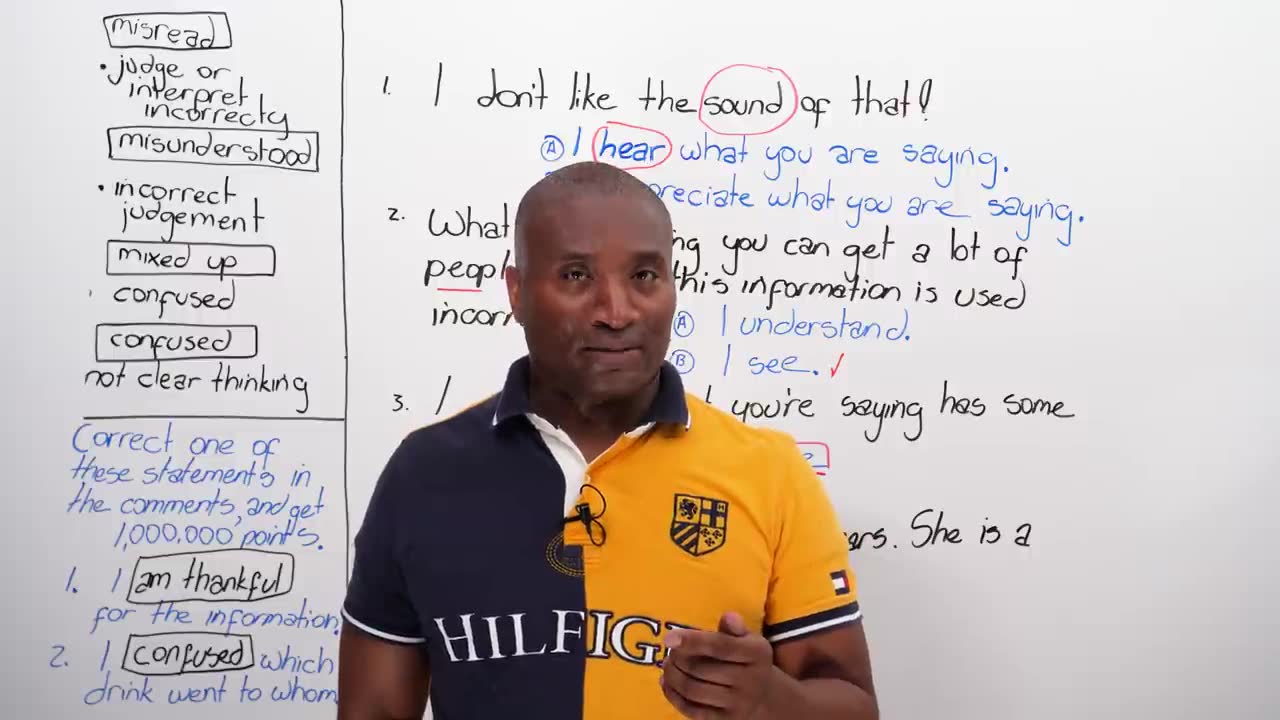 misread
• judge or
interpret
incorrecty
misunderstood
• incorrect
judgement
mixed up
confused
confused
not clear thinking
Correct one of
these statements in
the comments, and get
1,000,000 points.
1. I am thankful
for the information.
2. I confused which
drink went to whom
1. I don't like the sound of that!
Ⓐ I hear what you are saying.
what you are saying.
2. What you can get a lot of
this information is used
Ⓐ I understand.
Ⓑ I see. ✓
3. I you're saying has some
She is a
HILFIG